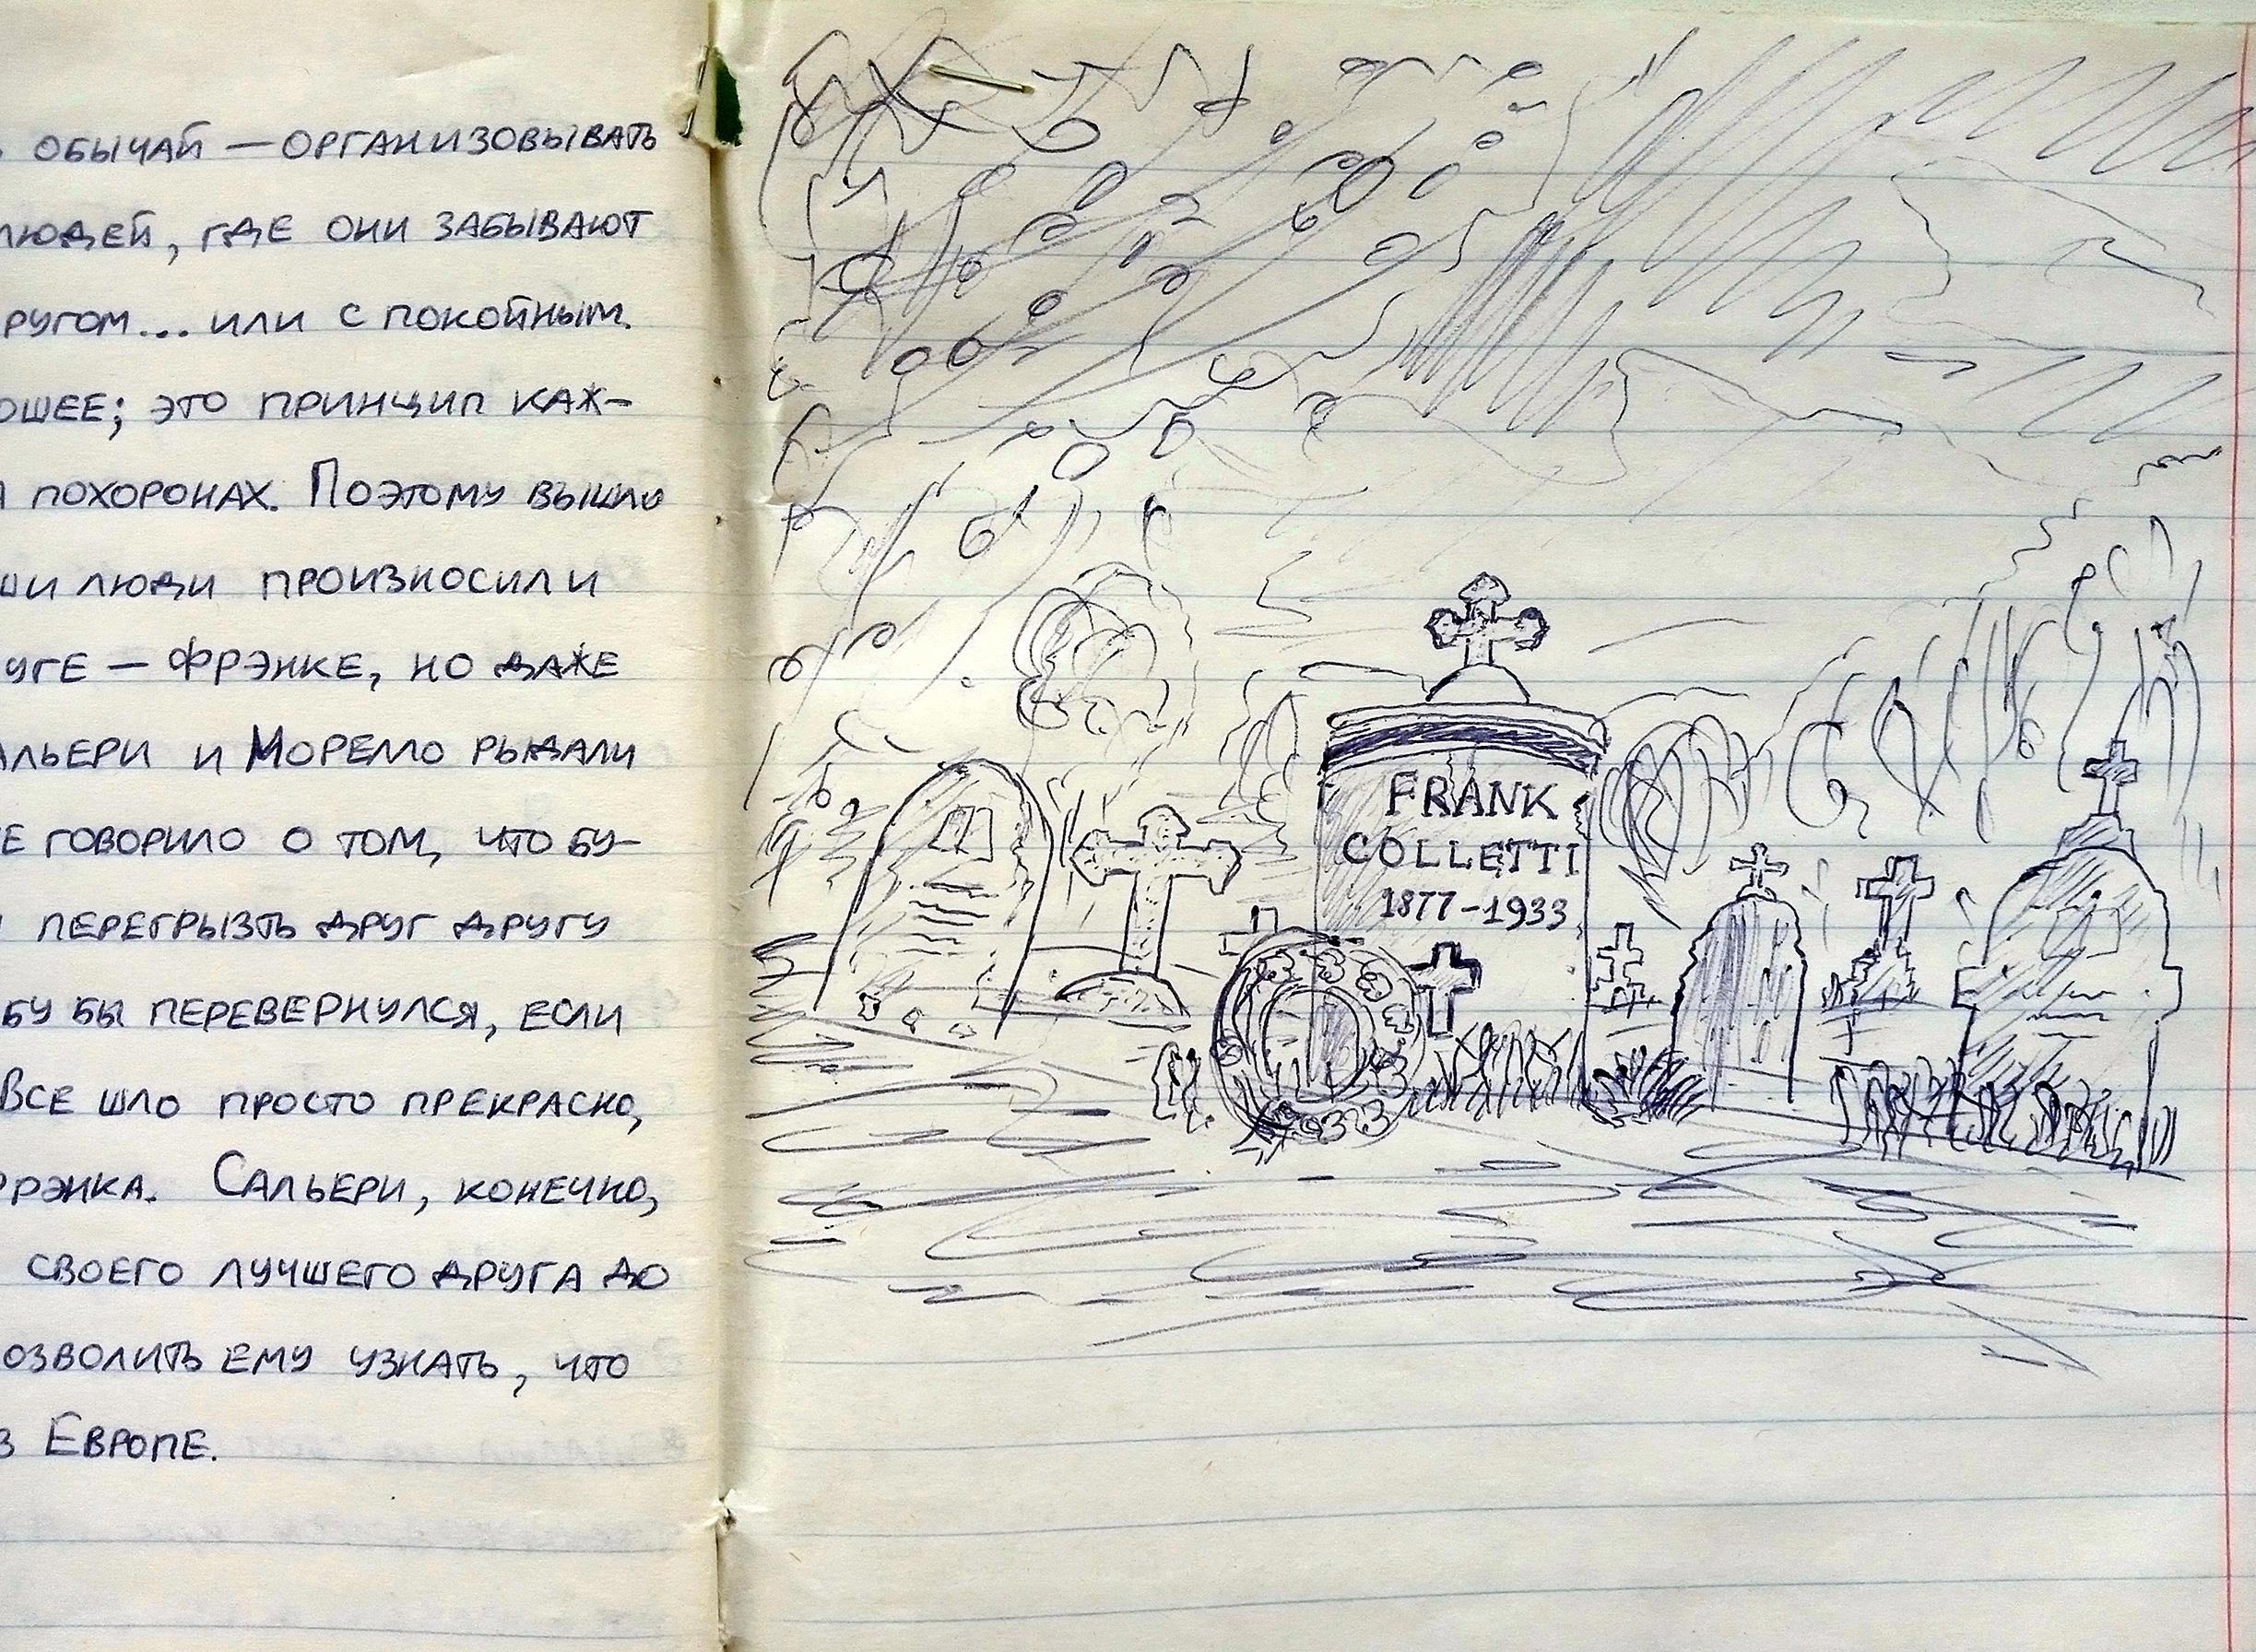 ОБЫЧАЙ — ОРГАНИЗОВЫВАТЬ
ЛЮДЕЙ, ГДЕ ОНИ ЗАБЫВАЮТ
РУГОМ... ИЛИ С ПОКОЙНЫМ.
ОШЕЕ; ЭТО ПРИНЦИП КАЖ-
ПОХОРОНАХ. ПОЭТОМУ ВЫШЛО
ШИ ЛЮДИ ПРОИЗНОСИЛИ
УГЕ — ФРЭНКЕ, НО ДАЖЕ
АЛЬЕРИ И МОРЕЛЛО РЫДАЛИ
Е ГОВОРИЛО О ТОМ, ЧТО БУ-
ПЕРЕГРЫЗТЬ ДРУГ ДРУГУ
БУ БЫ ПЕРЕВЕРНУЛСЯ, ЕСЛИ
ВСЕ ШЛО ПРОСТО ПРЕКРАСНО,
РЭНКА. САЛЬЕРИ, КОНЕЧНО,
СВОЕГО ЛУЧШЕГО ДРУГА ДО
ОЗВОЛИТЬ ЕМУ УЗНАТЬ, ЧТО
В ЕВРОПЕ.
FRANK
COLLETTI
1877-1933
1933